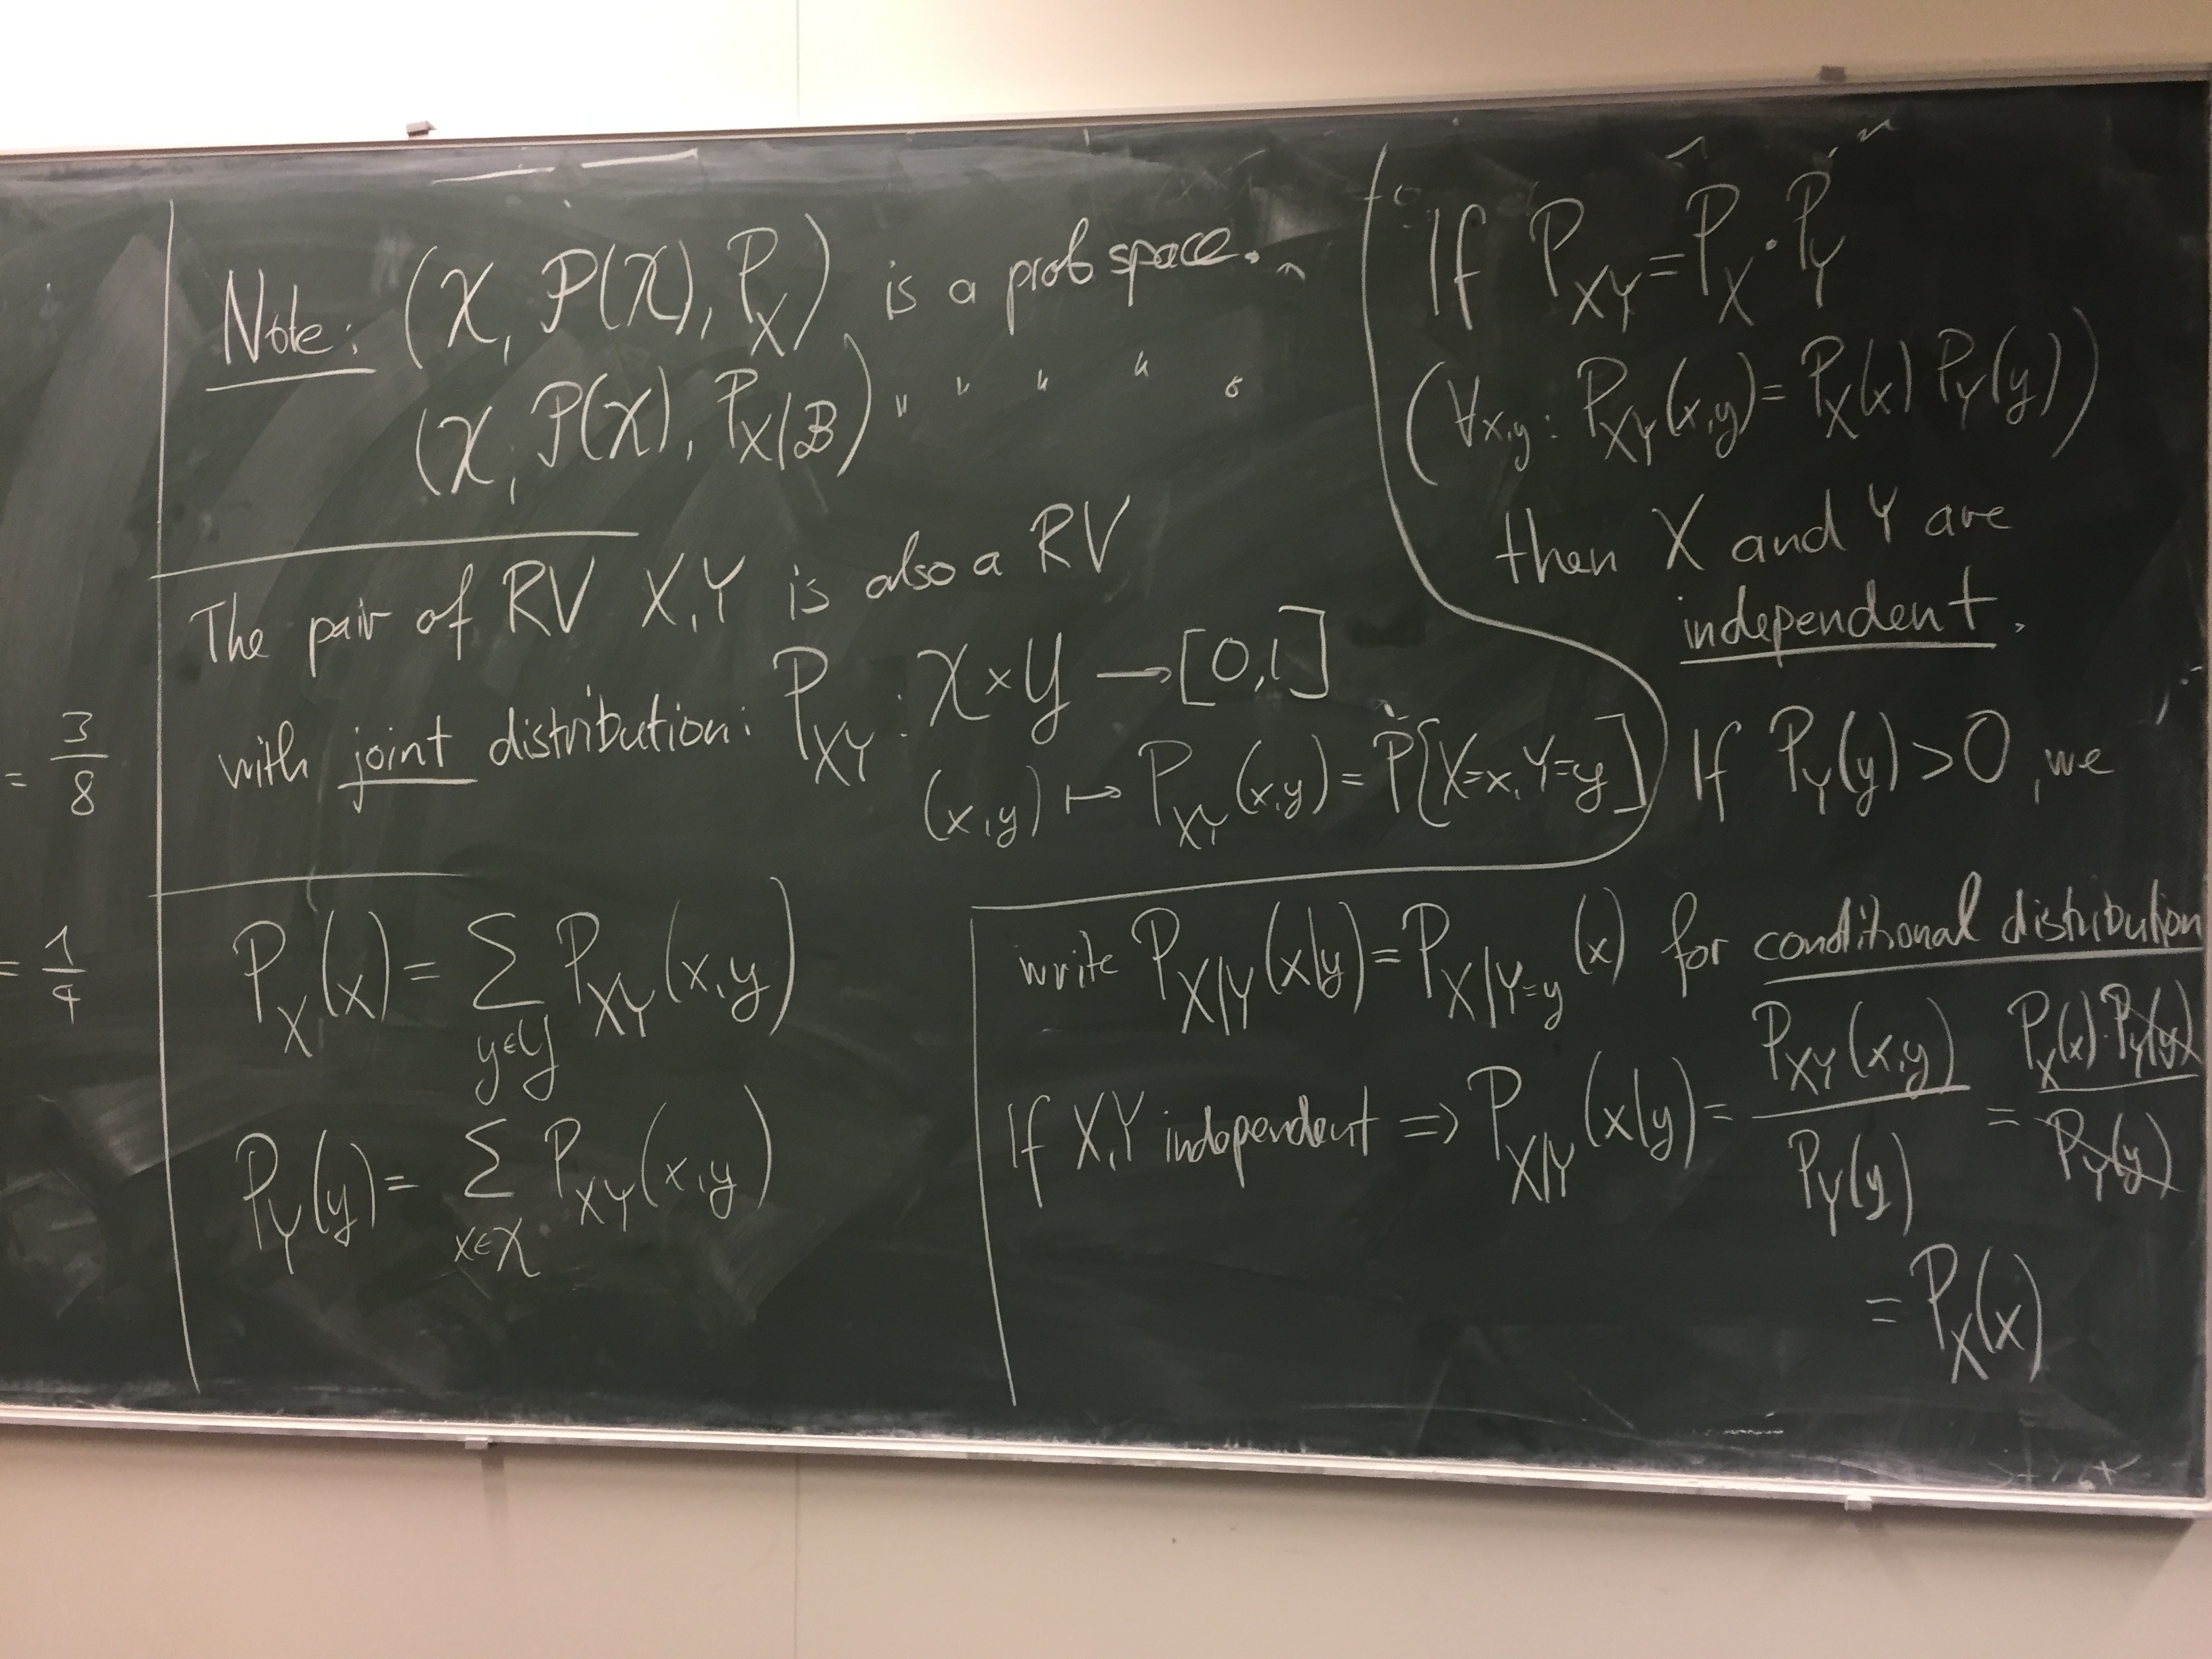 = 3/8
= 1/4
Note: (𝒳, 𝒫(𝒳), P_X) is a prob space.
(𝒳, 𝒫(𝒳), P_X|ℬ) " " " " "
The pair of RV X,Y is also a RV
with joint distribution: P_XY : 𝒳 × 𝒴 → [0,1]
(x,y) ↦ P_XY(x,y) = P[X=x, Y=y]
P_X(x) = Σ_{y∈𝒴} P_XY(x,y)
P_Y(y) = Σ_{x∈𝒳} P_XY(x,y)
If P_XY = P_X · P_Y
(∀x,y : P_XY(x,y) = P_X(x) P_Y(y))
then X and Y are
independent.
If P_Y(y) > 0, we
write P_X|Y(x|y) = P_X|Y=y(x) for conditional distribution
If X,Y independent ⇒ P_X|Y(x|y) = P_XY(x,y) / P_Y(y) = P_X(x)·P_Y(y) / P_Y(y)
= P_X(x)